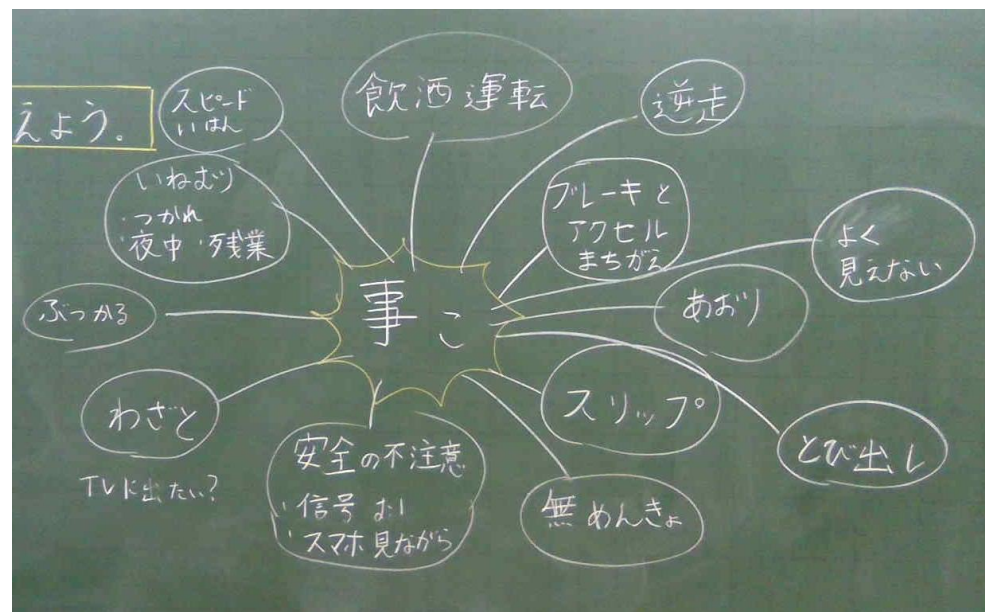 えよう。
スピード
いはん
飲酒運転
逆走
いねむり
・つかれ
・夜中・残業
ブレーキと
アクセル
まちがえ
よく
見えない
ぶつかる
事こ
あおり
わざと
TVに出たい?
安全の不注意
・信号
・スマホ見ながら
スリップ
無めんきょ
とび出し